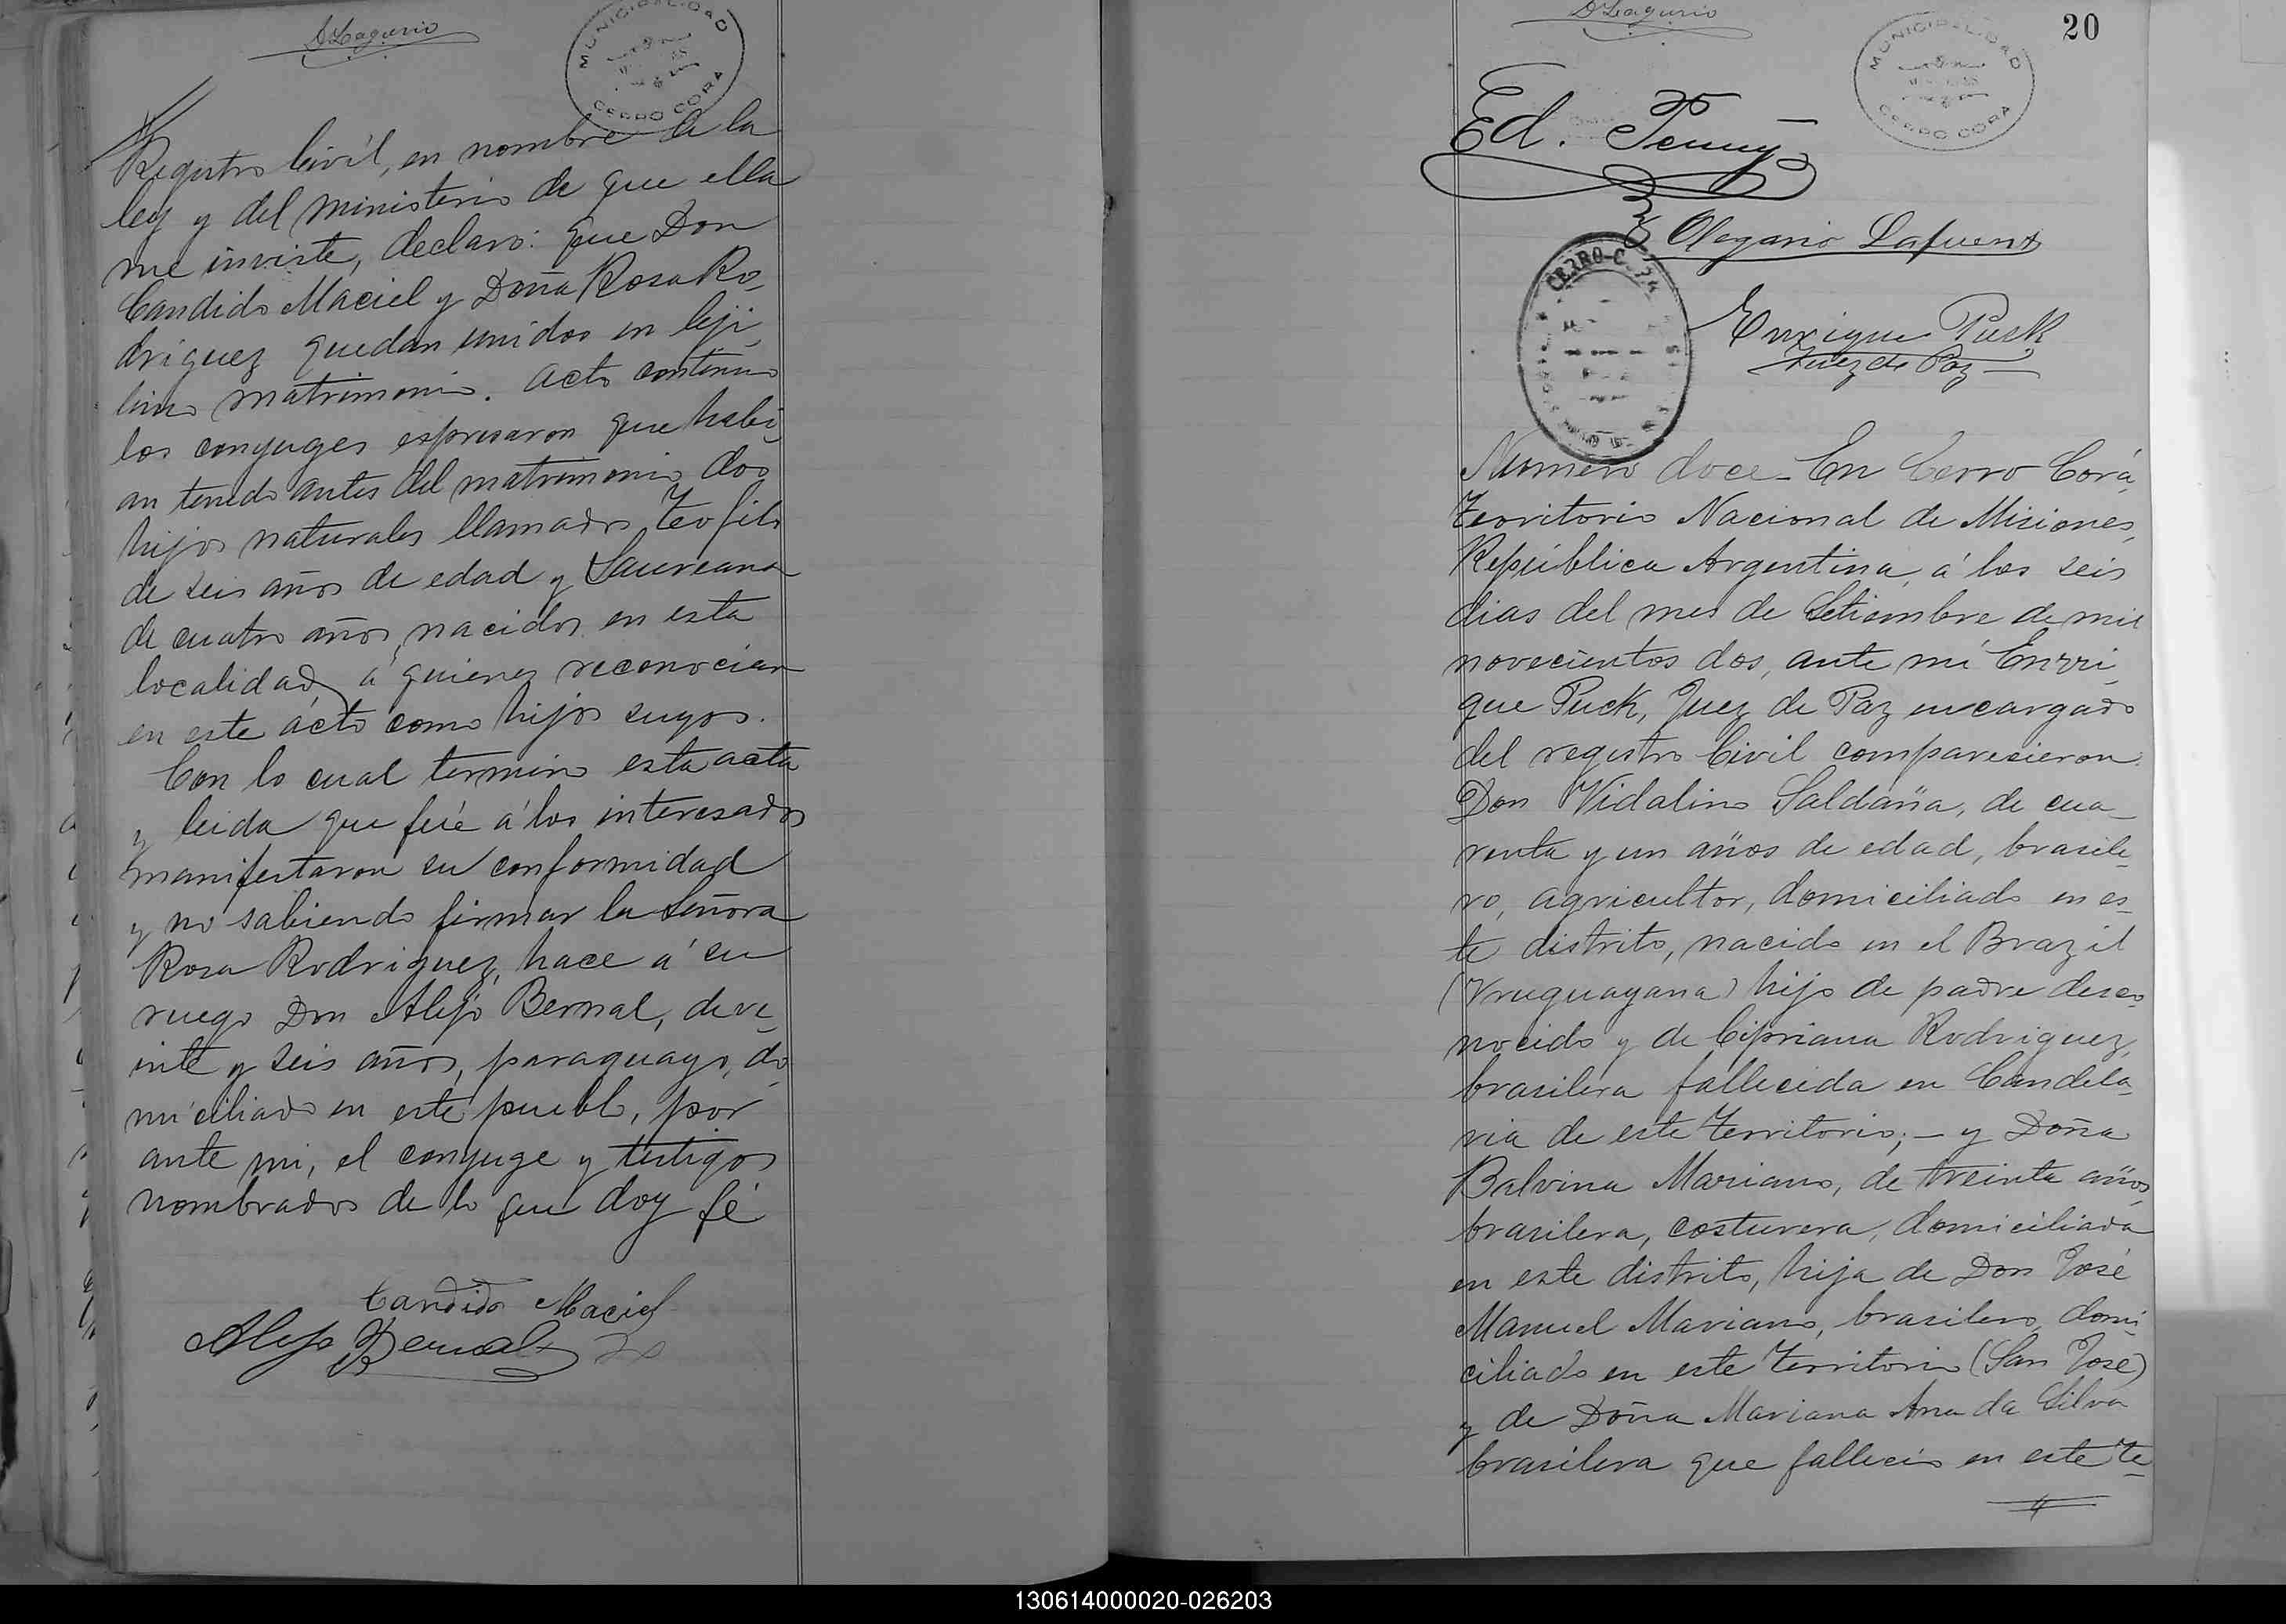 A Lagurio
MUNICIPALIDAD
CERRO CORA
Registro Civil, en nombre de la
ley y del ministerio de que ella
me inviste, declaro: que Don
Candido Maciel y Doña Rosa Ro-
driguez quedan unidos en leji-
timo matrimonio. Acto continuo
los conyuges espresaron que habi-
an tenido antes del matrimonio dos
hijos naturales llamados Teofilo
de seis años de edad y Laureana
de cuatro años, nacidos en esta
localidad, á quienes reconocian
en este ácto como hijos suyos.
Con lo cual termino esta acta
y leida que fué á los interesados
manifestaron su conformidad
y no sabiendo firmar la Señora
Rosa Rodriguez, hace á su
ruego Don Alejo Bernal, de ve-
inte y seis años, paraguayo, do-
miciliado en este pueblo, por
ante mi, el conyuge y testigos
nombrados de lo que doy fé
Candido Maciel
Alejo Bernal
A Lagurio
MUNICIPALIDAD
CERRO CORA
20
Ed. Penny
Olegario Lafuent
CERRO-C
Enrique Puck
Juez de Paz
Numero doce - En Cerro Corá,
Territorio Nacional de Misiones,
República Argentina, á los seis
dias del mes de Setiembre de mil
novecientos dos, ante mí Enrri-
que Puck, Juez de Paz encargado
del registro Civil comparecieron
Don Vidalino Saldaña, de cua-
renta y un años de edad, brasile-
ro, agricultor, domiciliado en es-
te distrito, nacido en el Brazil
(Uruguayana) hijo de padre desco-
nocido y de Cipriana Rodriguez,
brasilera fallecida en Candela-
ria de este Territorio; - y Doña
Balvina Mariano, de treinta años
brasilera, costurera, domiciliada
en este distrito, hija de Don José
Manuel Mariano, brasilero, domi-
ciliado en este Territorio (San José)
y de Doña Mariana Ana da Silva
brasilera que falleció en este Te-
130614000020-026203